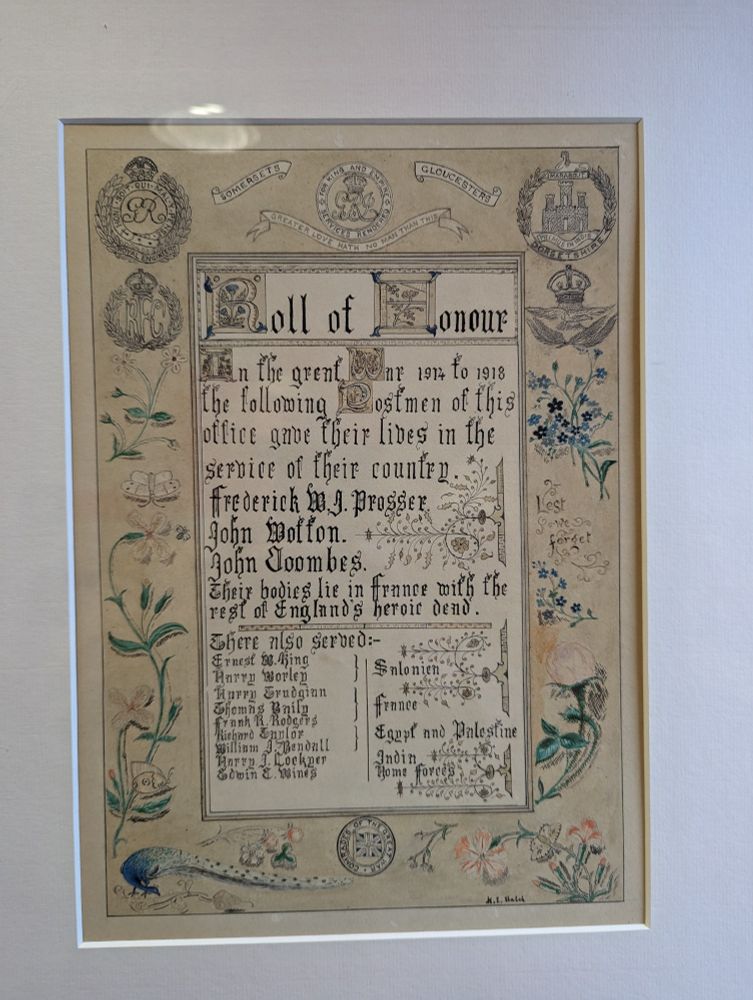 SOMERSETS
FOR KING AND EMPIRE
SERVICES RENDERED
GLOUCESTERS
GREATER LOVE HATH NO MAN THAN THIS
HONI·SOIT·QUI·MAL·Y·PENSE
GR
ROYAL ENGINEERS
MARABOUT
DORSETSHIRE
RFC
Roll of Honour
In the great War 1914 to 1918
the following Postmen of this
office gave their lives in the
service of their country.
Frederick W.J. Prosser.
John Wotton.
John Coombes.
Their bodies lie in France with the
rest of England's heroic dead.
There also served:-
Ernest W. King
Harry Worley
Harry Trudginn
Thomas Baily
Frank R. Rodgers
Richard Taylor
William J. Bendall
Harry J. Lockyer
Edwin C. Wines
Salonica
France
Egypt and Palestine
India
Home Forces
Lest
we
forget
COMRADES OF THE GREAT WAR